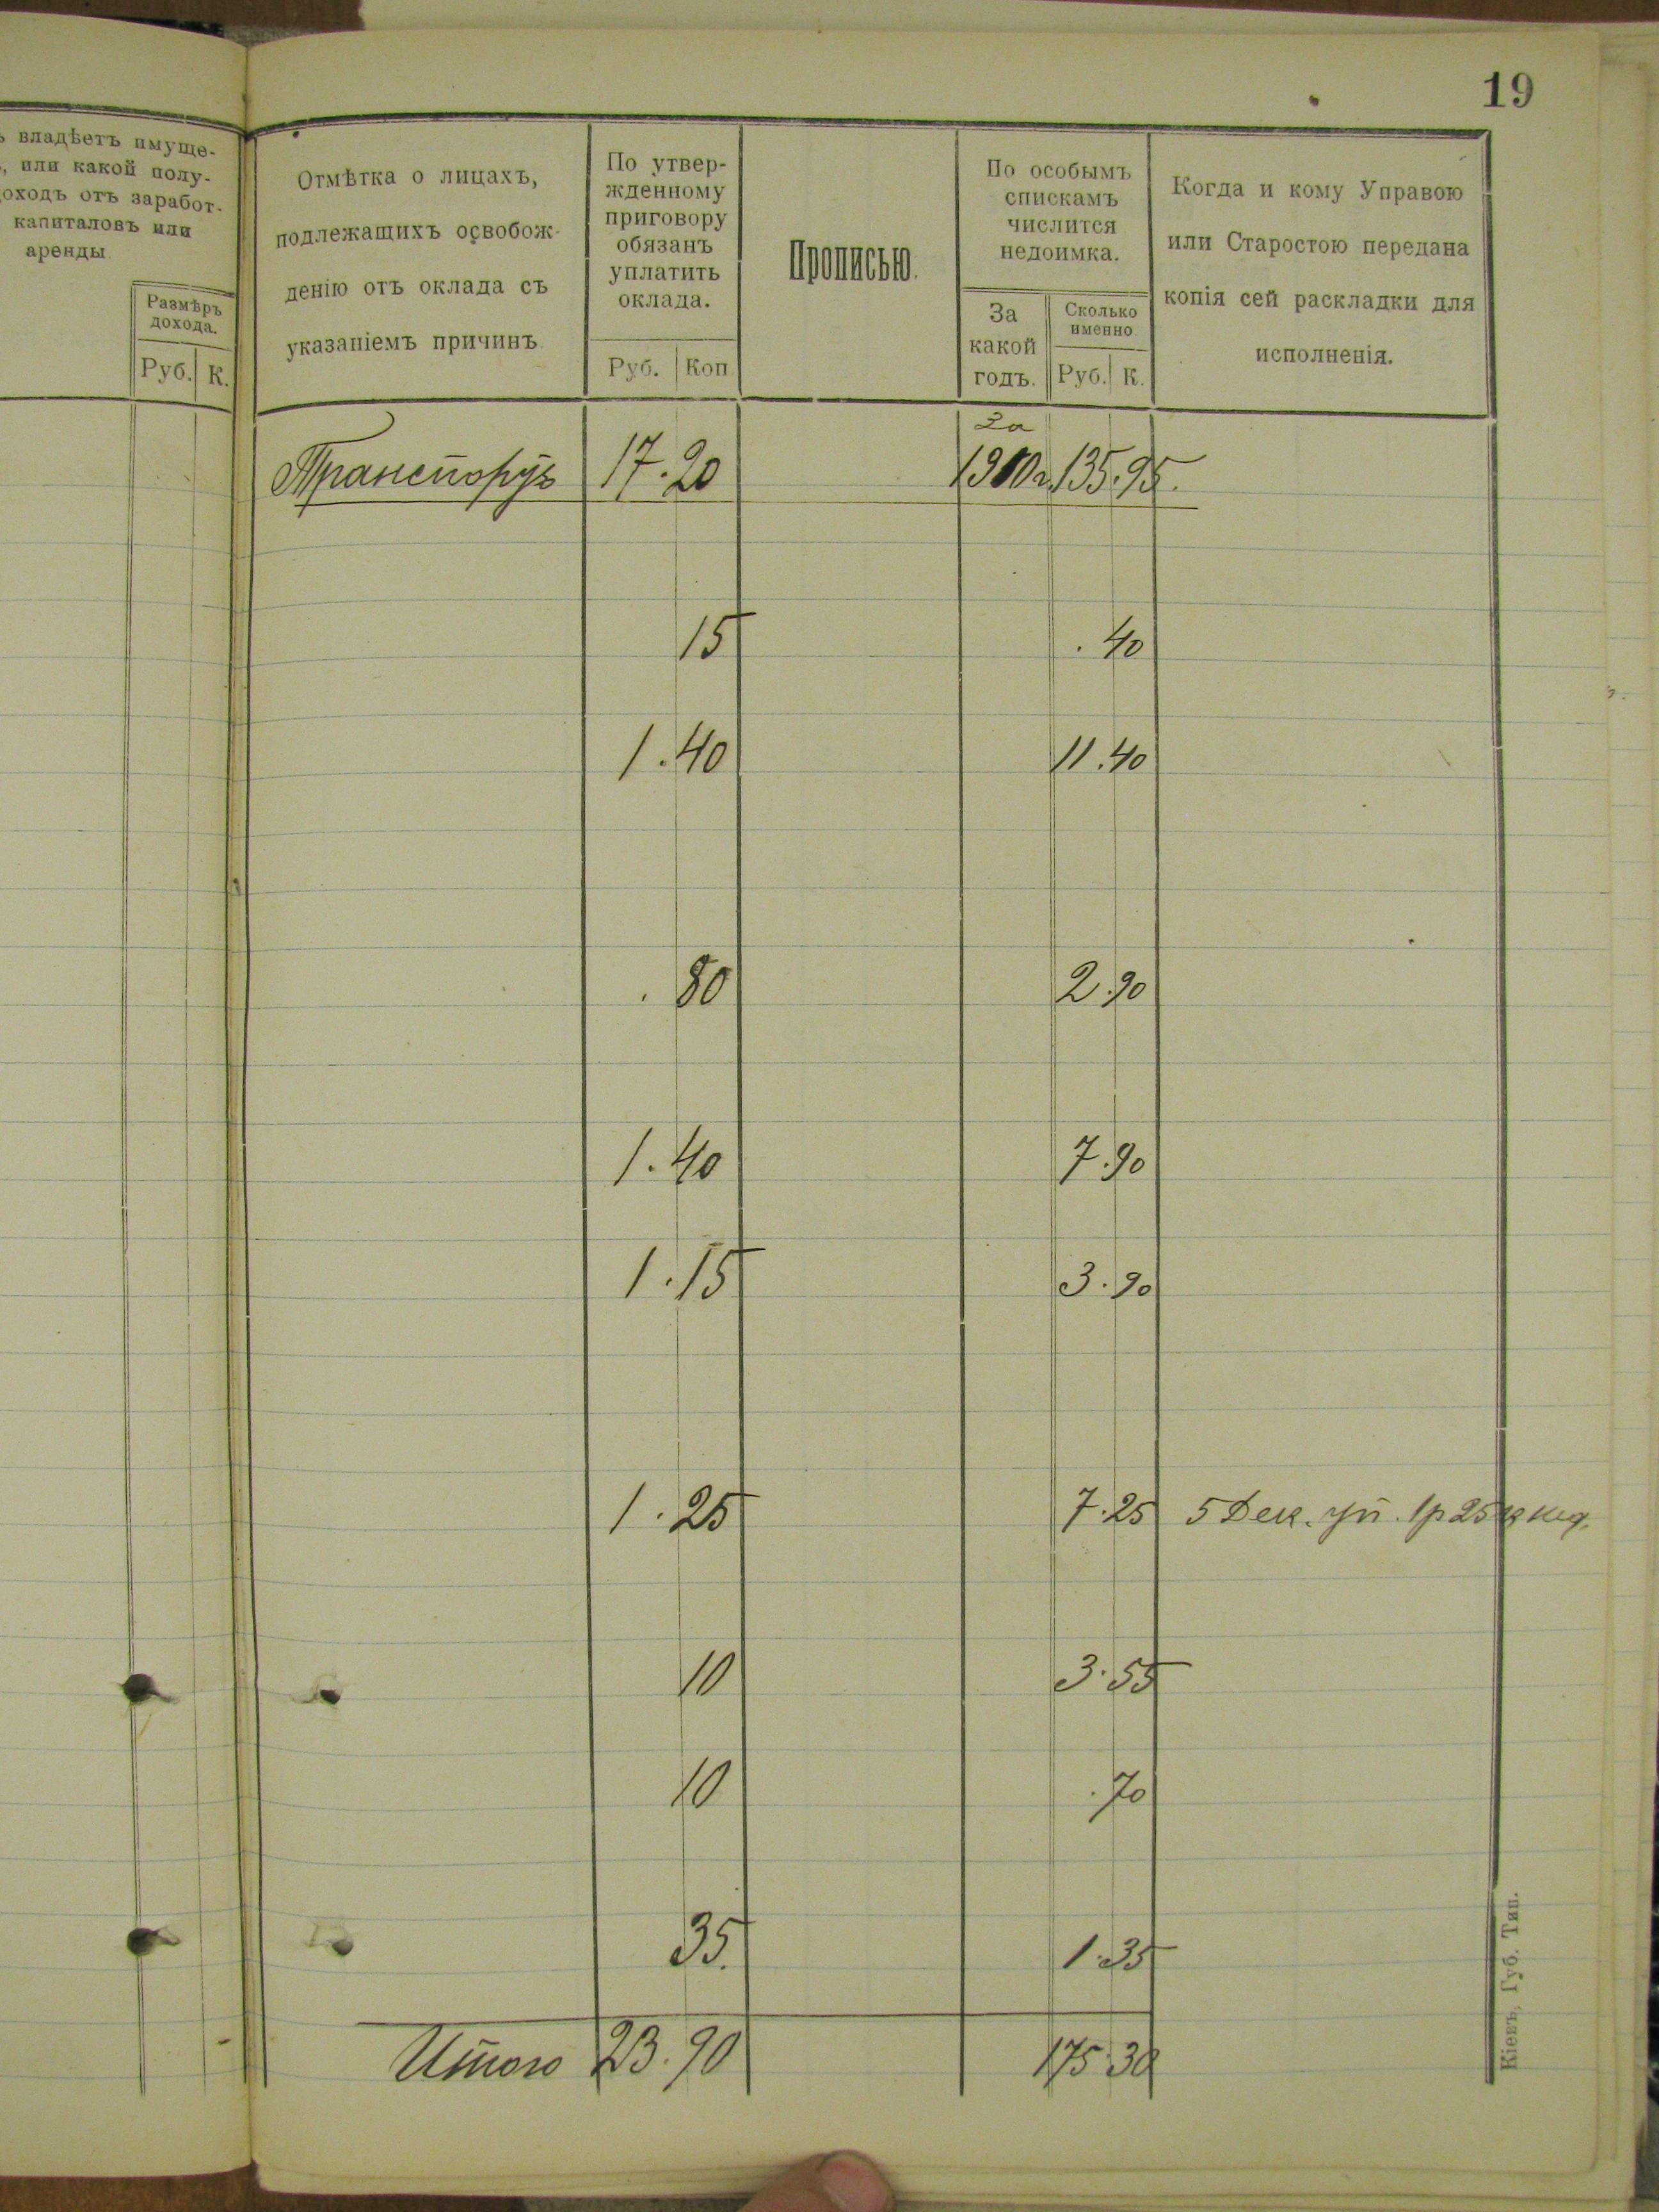 19
ъ владѣетъ имуще-
, или какой полу-
доходъ отъ заработ-
капиталовъ или
аренды
Размѣръ
дохода.
Руб. К.
Отмѣтка о лицахъ,
подлежащихъ освобож-
денію отъ оклада съ
указаніемъ причинъ
По утвер-
жденному
приговору
обязанъ
уплатить
оклада.
Руб. Коп
Прописью.
По особымъ
спискамъ
числится
недоимка.
За
какой
годъ.
Сколько
именно
Руб. К.
Когда и кому Управою
или Старостою передана
копія сей раскладки для
исполненія.
Транспортъ 17.20 За 1910г. 135.95.
15 .40
1.40 11.40
.80 2.90
1.40 7.90
1.15 3.90
1.25 7.25 5 Дек. уп. 1р 25к
10 3.55
10 .70
35. 1.35
Итого 23.90 175.30
Кіевъ, Губ. Тип.